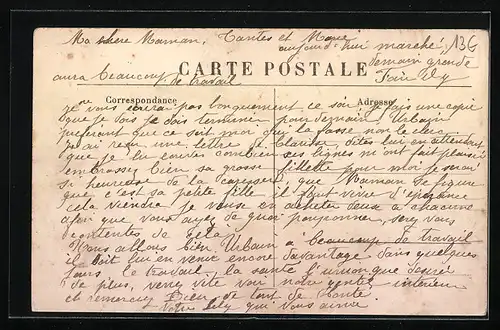 Ma chere Maman, Tantes et Marie
aujourd'hui marché, 13G
demain grande
aura beaucoup de travail
Foire Lily
CARTE POSTALE
Correspondance
Adresse
je vous écris pas longuement ce soir, je fais une copie
que je dois je dois terminer pour demain Urbain
préférant que ce soit moi qui la fasse non le clerc
J'ai reçu une lettre de Clarisse, dites lui en attendant
que je lui envoie combien ses lignes m'ont fait plaisir
embrassez bien sa grosse fillette pour moi je serai
si heureuse de la que Maman se figure
que c'est sa petite fille il faut vivre d'espérance
cela viendra je pense en acheter deux à chacune
afin que vous ayez de quoi pouponner, serez vous
contentes de cela?
Nous allons bien Urbain a beaucoup de travail
il doit lui en venir encore davantage dans quelques
jours, le travail, la santé l'union que désirer
de plus, venez vite voir notre gentil intérieur
et remercier Dieu de tant de bonté.
Votre Lily qui vous aime